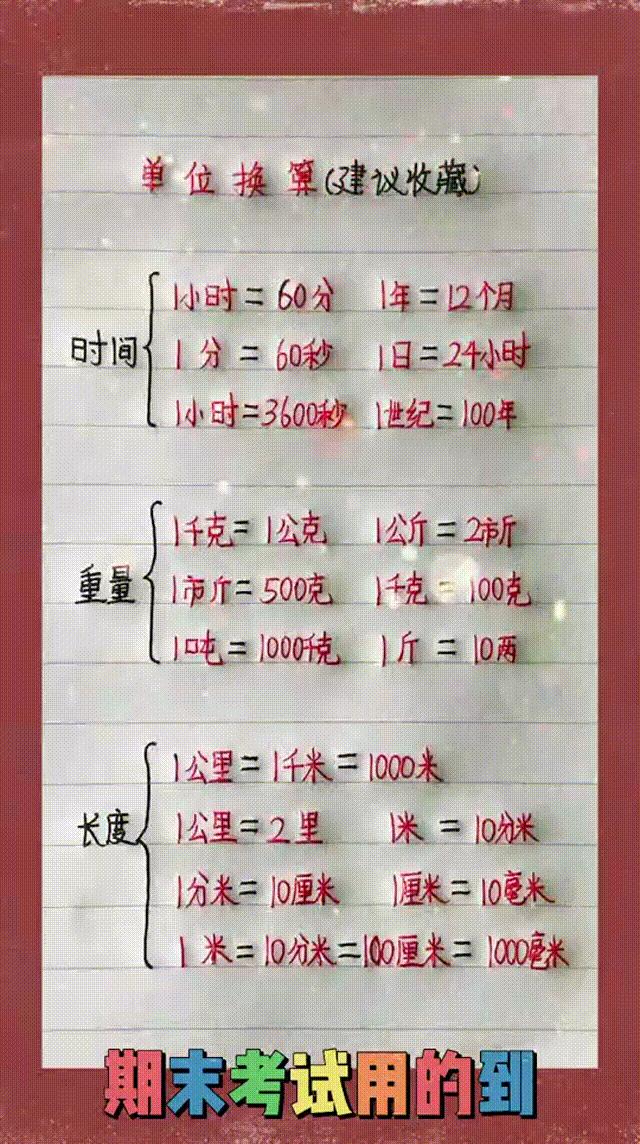 单位换算(建议收藏)
时间
1小时=60分 1年=12个月
1分=60秒 1日=24小时
1小时=3600秒 1世纪=100年
重量
1千克=1公克 1公斤=2市斤
1市斤=500克 1千克=100克
1吨=1000千克 1斤=10两
长度
1公里=1千米=1000米
1公里=2里 1米=10分米
1分米=10厘米 1厘米=10毫米
1米=10分米=100厘米=1000毫米
期末考试用的到